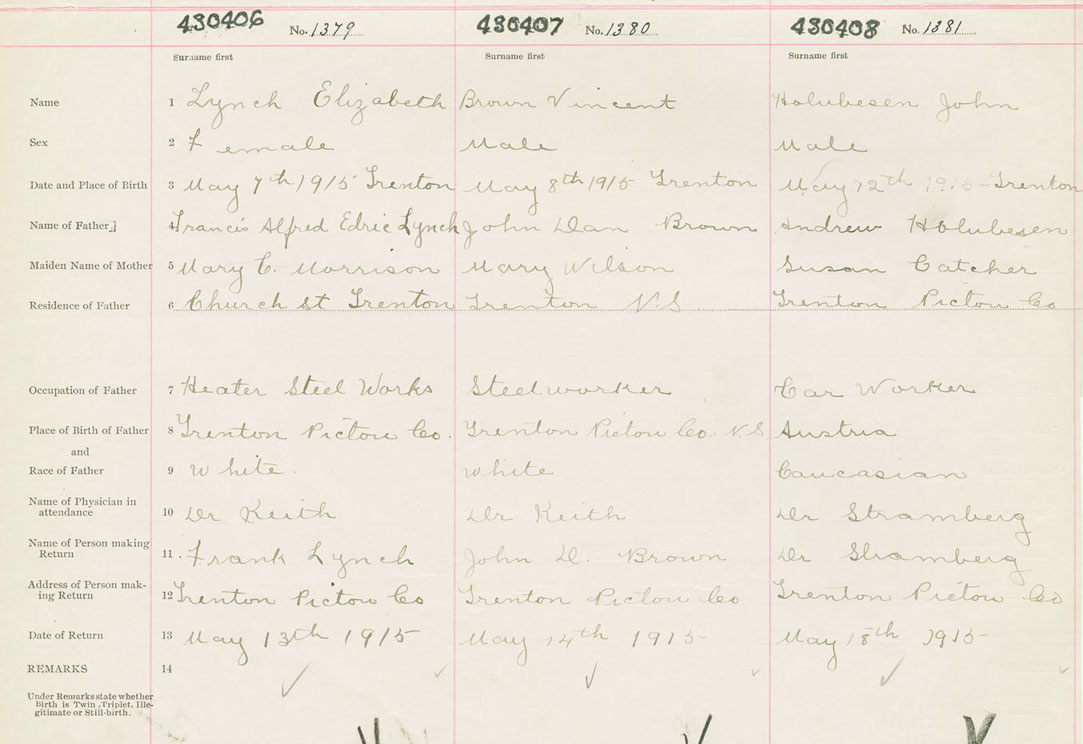 430406 No. 1379 430407 No. 1380 430408 No. 1381
Surname first Surname first Surname first
Name 1 Lynch Elizabeth Brown Vincent Holubesen John
Sex 2 Female Male Male
Date and Place of Birth 3 May 7th 1915 Trenton May 8th 1915 Trenton May 12th 1915 Trenton
Name of Father 4 Francis Alfred Edric Lynch John Dan Brown Andrew Holubesen
Maiden Name of Mother 5 Mary C. Morrison Mary Wilson Susan Catcher
Residence of Father 6 Church st Trenton Trenton N.S Trenton Pictou Co
Occupation of Father 7 Heater Steel Works Steelworker Car Worker
Place of Birth of Father 8 Trenton Pictou Co. Trenton Pictou Co. N S Austria
and
Race of Father 9 White White Caucasian
Name of Physician in
attendance 10 Dr Keith Dr Keith Dr Stramberg
Name of Person making
Return 11. Frank Lynch John D. Brown Dr Stramberg
Address of Person mak-
ing Return 12 Trenton Pictou Co Trenton Pictou Co Trenton Pictou Co
Date of Return 13 May 13th 1915 May 14th 1915 May 18th 1915
REMARKS 14
Under Remarks state whether
Birth is Twin, Triplet. Ille-
gitimate or Still-birth.